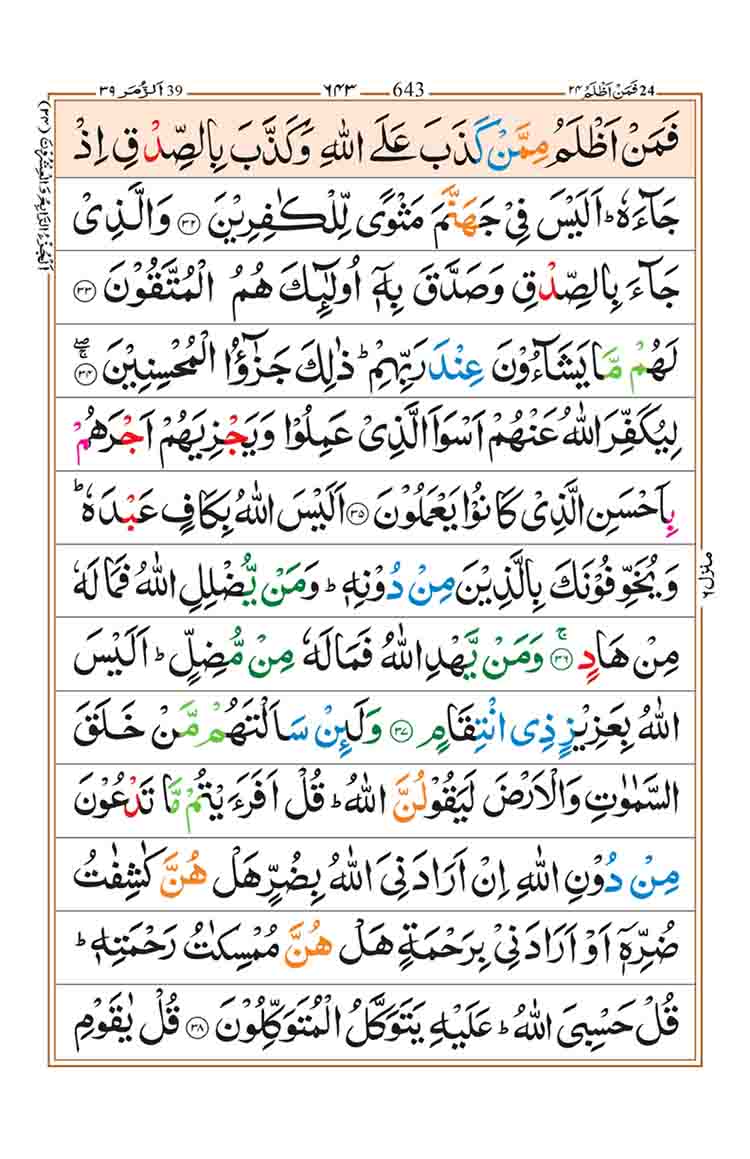 24 فَمَنْ اَظْلَمُ ۲۴ 643 ۶۴۳ 39 اَلزُّمَر ۳۹
فَمَنْ اَظْلَمُ مِمَّنْ كَذَبَ عَلَى اللّٰهِ وَكَذَّبَ بِالصِّدْقِ اِذْ
جَآءَهٗ ؕ اَلَيْسَ فِيْ جَهَنَّمَ مَثْوًى لِّلْكٰفِرِيْنَ ۝۳۲ وَالَّذِيْ
جَآءَ بِالصِّدْقِ وَصَدَّقَ بِهٖۤ اُولٰٓئِكَ هُمُ الْمُتَّقُوْنَ ۝۳۳
لَهُمْ مَّا يَشَآءُوْنَ عِنْدَ رَبِّهِمْ ؕ ذٰلِكَ جَزٰٓؤُا الْمُحْسِنِيْنَ ۝۳۴ ۚۖ
لِيُكَفِّرَ اللّٰهُ عَنْهُمْ اَسْوَاَ الَّذِيْ عَمِلُوْا وَيَجْزِيَهُمْ اَجْرَهُمْ
بِاَحْسَنِ الَّذِيْ كَانُوْا يَعْمَلُوْنَ ۝۳۵ اَلَيْسَ اللّٰهُ بِكَافٍ عَبْدَهٗ ؕ
وَيُخَوِّفُوْنَكَ بِالَّذِيْنَ مِنْ دُوْنِهٖ ؕ وَمَنْ يُّضْلِلِ اللّٰهُ فَمَا لَهٗ
مِنْ هَادٍ ۝۳۶ ۚ وَمَنْ يَّهْدِ اللّٰهُ فَمَا لَهٗ مِنْ مُّضِلٍّ ؕ اَلَيْسَ
اللّٰهُ بِعَزِيْزٍ ذِي انْتِقَامٍ ۝۳۷ وَلَئِنْ سَاَلْتَهُمْ مَّنْ خَلَقَ
السَّمٰوٰتِ وَالْاَرْضَ لَيَقُوْلُنَّ اللّٰهُ ؕ قُلْ اَفَرَءَيْتُمْ مَّا تَدْعُوْنَ
مِنْ دُوْنِ اللّٰهِ اِنْ اَرَادَنِيَ اللّٰهُ بِضُرٍّ هَلْ هُنَّ كٰشِفٰتُ
ضُرِّهٖۤ اَوْ اَرَادَنِيْ بِرَحْمَةٍ هَلْ هُنَّ مُمْسِكٰتُ رَحْمَتِهٖ ؕ
قُلْ حَسْبِيَ اللّٰهُ ؕ عَلَيْهِ يَتَوَكَّلُ الْمُتَوَكِّلُوْنَ ۝۳۸ قُلْ يٰقَوْمِ
منزل ۶
اَلْجُزْءُ الرَّابِعُ وَالْعِشْرُوْنَ (۲۴)